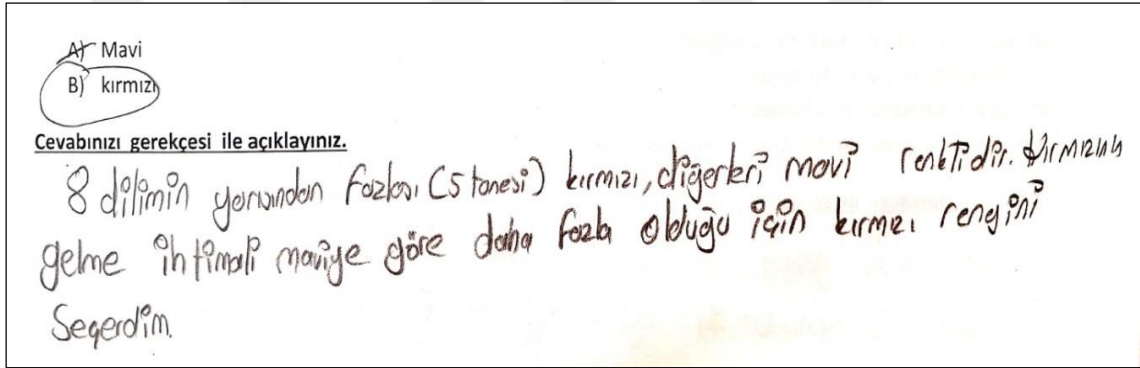 A) Mavi
B) kırmızı
Cevabınızı gerekçesi ile açıklayınız.
8 dilimin yarısından fazlası (5 tanesi) kırmızı, diğerleri mavi renktidir. Kırmızının
gelme ihtimali maviye göre daha fazla olduğu için kırmızı rengini
seçerdim.